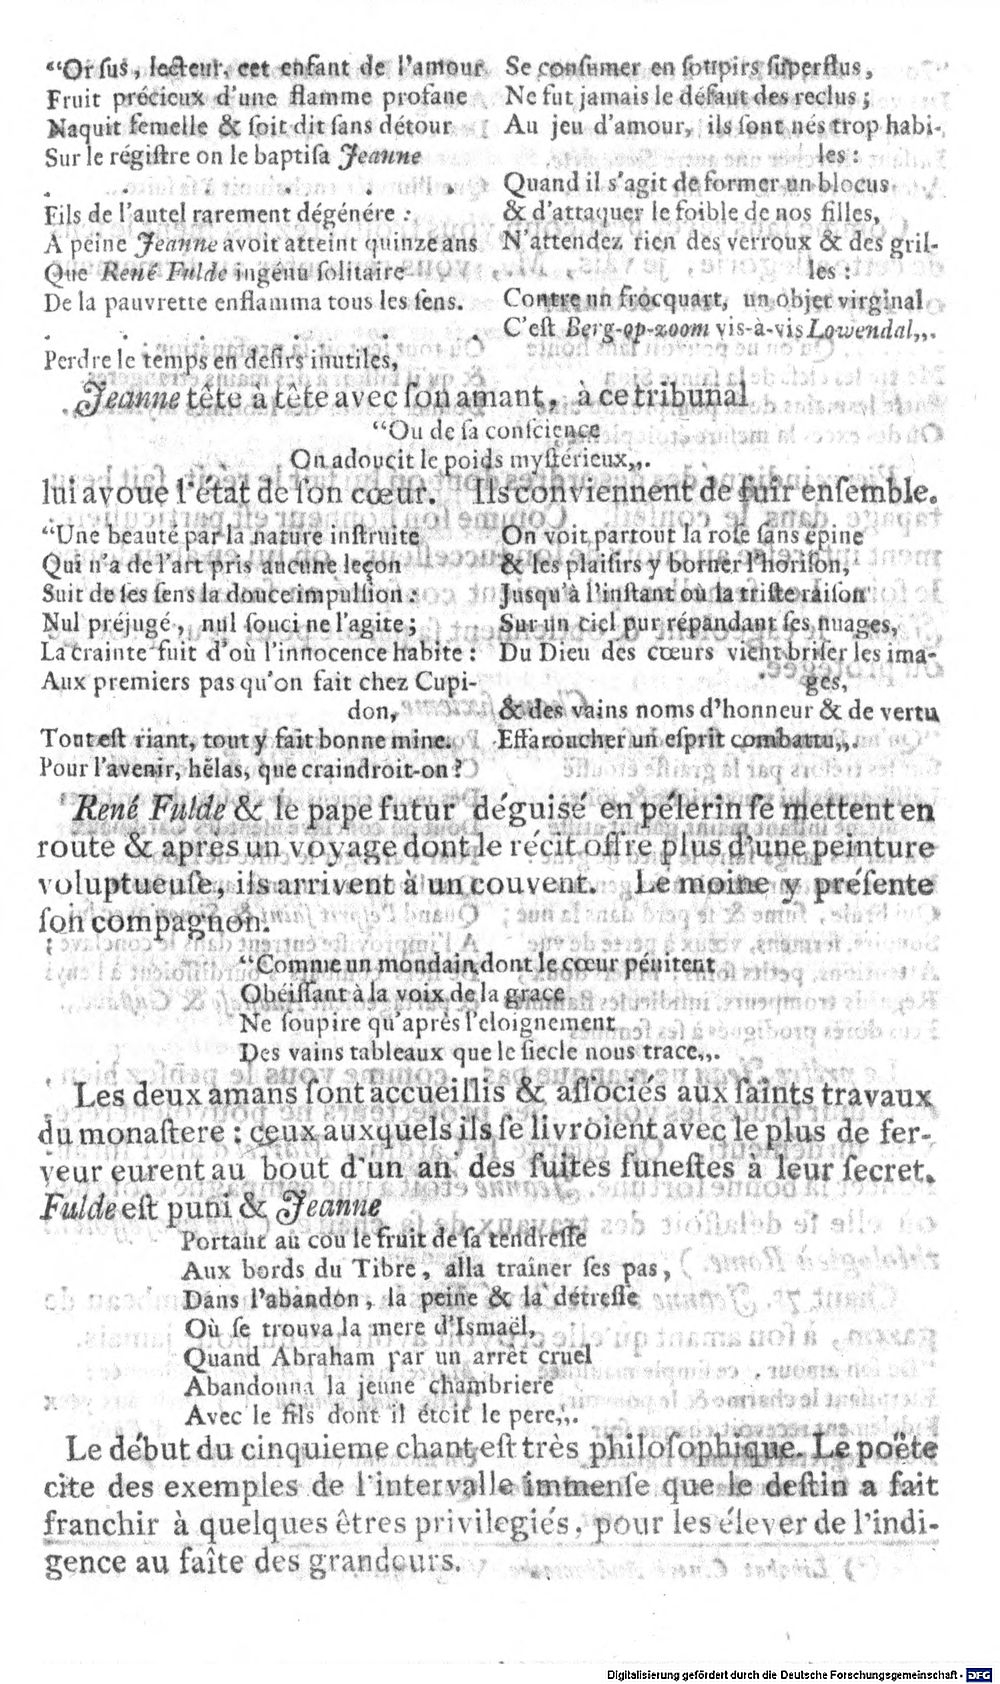 “Or ſus, lecteur, cet enfant de l’amour
Fruit précieux d’une flamme profane
Naquit femelle & ſoit dit ſans détour
Sur le régiſtre on le baptiſa Jeanne
. . . . . .
Fils de l’autel rarement dégénére :
A peine Jeanne avoit atteint quinze ans
Que René Fulde ingénu ſolitaire
De la pauvrette enflamma tous les ſens.
. . . . . .
Perdre le temps en deſirs inutiles,
Se conſumer en ſoupirs ſuperflus,
Ne fut jamais le défaut des reclus ;
Au jeu d’amour, ils ſont nés trop habi-
les :
Quand il s’agit de former un blocus
& d’attaquer le foible de nos filles,
N’attendez rien des verroux & des gril-
les :
Contre un frocquart, un objet virginal
C’eſt Berg-op-zoom vis-à-vis Lowendal„.
Jeanne tête à tête avec ſon amant, à ce tribunal
“Ou de ſa conſcience
On adoucit le poids myſtérieux„.
lui avoue l’état de ſon cœur. Ils conviennent de fuir enſemble.
“Une beauté par la nature inſtruite
Qui n’a de l’art pris aucune leçon
Suit de ſes ſens la douce impulſion :
Nul préjugé, nul ſouci ne l’agite ;
La crainte fuit d’où l’innocence habite :
Aux premiers pas qu’on fait chez Cupi-
don,
Tout eſt riant, tout y fait bonne mine.
Pour l’avenir, hélas, que craindroit-on ?
On voit partout la roſe ſans épine
& les plaiſirs y borner l’horiſon,
Jusqu’à l’inſtant où la triſte raiſon
Sur un ciel pur répandant ſes nuages,
Du Dieu des cœurs vient briſer les ima-
ges,
& des vains noms d’honneur & de vertu
Effaroucher un eſprit combattu„.
René Fulde & le pape futur déguisé en pélerin ſe mettent en
route & apres un voyage dont le récit offre plus d’une peinture
voluptueuſe, ils arrivent à un couvent. Le moine y préſente
ſon compagnon.
“Comme un mondain dont le cœur pénitent
Obéiſſant à la voix de la grace
Ne ſoupire qu’après l’eloignement
Des vains tableaux que le ſiecle nous trace„.
Les deux amans ſont accueillis & aſſociés aux ſaints travaux
du monaſtere : ceux auxquels ils ſe livroient avec le plus de fer-
veur eurent au bout d’un an des ſuites funeſtes à leur ſecret.
Fulde eſt puni & Jeanne
Portant au cou le fruit de ſa tendreſſe
Aux bords du Tibre, alla traîner ſes pas,
Dans l’abandon, la peine & la détreſſe
Où ſe trouva la mere d’Ismaël,
Quand Abraham par un arrêt cruel
Abandonna la jeune chambriere
Avec le fils dont il étoit le pere„.
Le début du cinquieme chant eſt très philoſophique. Le poëte
cite des exemples de l’intervalle immenſe que le deſtin a fait
franchir à quelques êtres privilegiés, pour les élever de l’indi-
gence au faîte des grandeurs.
Digitalisierung gefördert durch die Deutsche Forschungsgemeinschaft - DFG